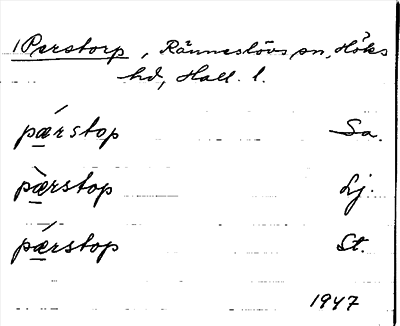 1 Perstorp, Ränneslövs sn, Höks
hd, Hall. l.
pǽrstop Sa.
pæ̀rstop Lj.
pǽrstop St.
1947